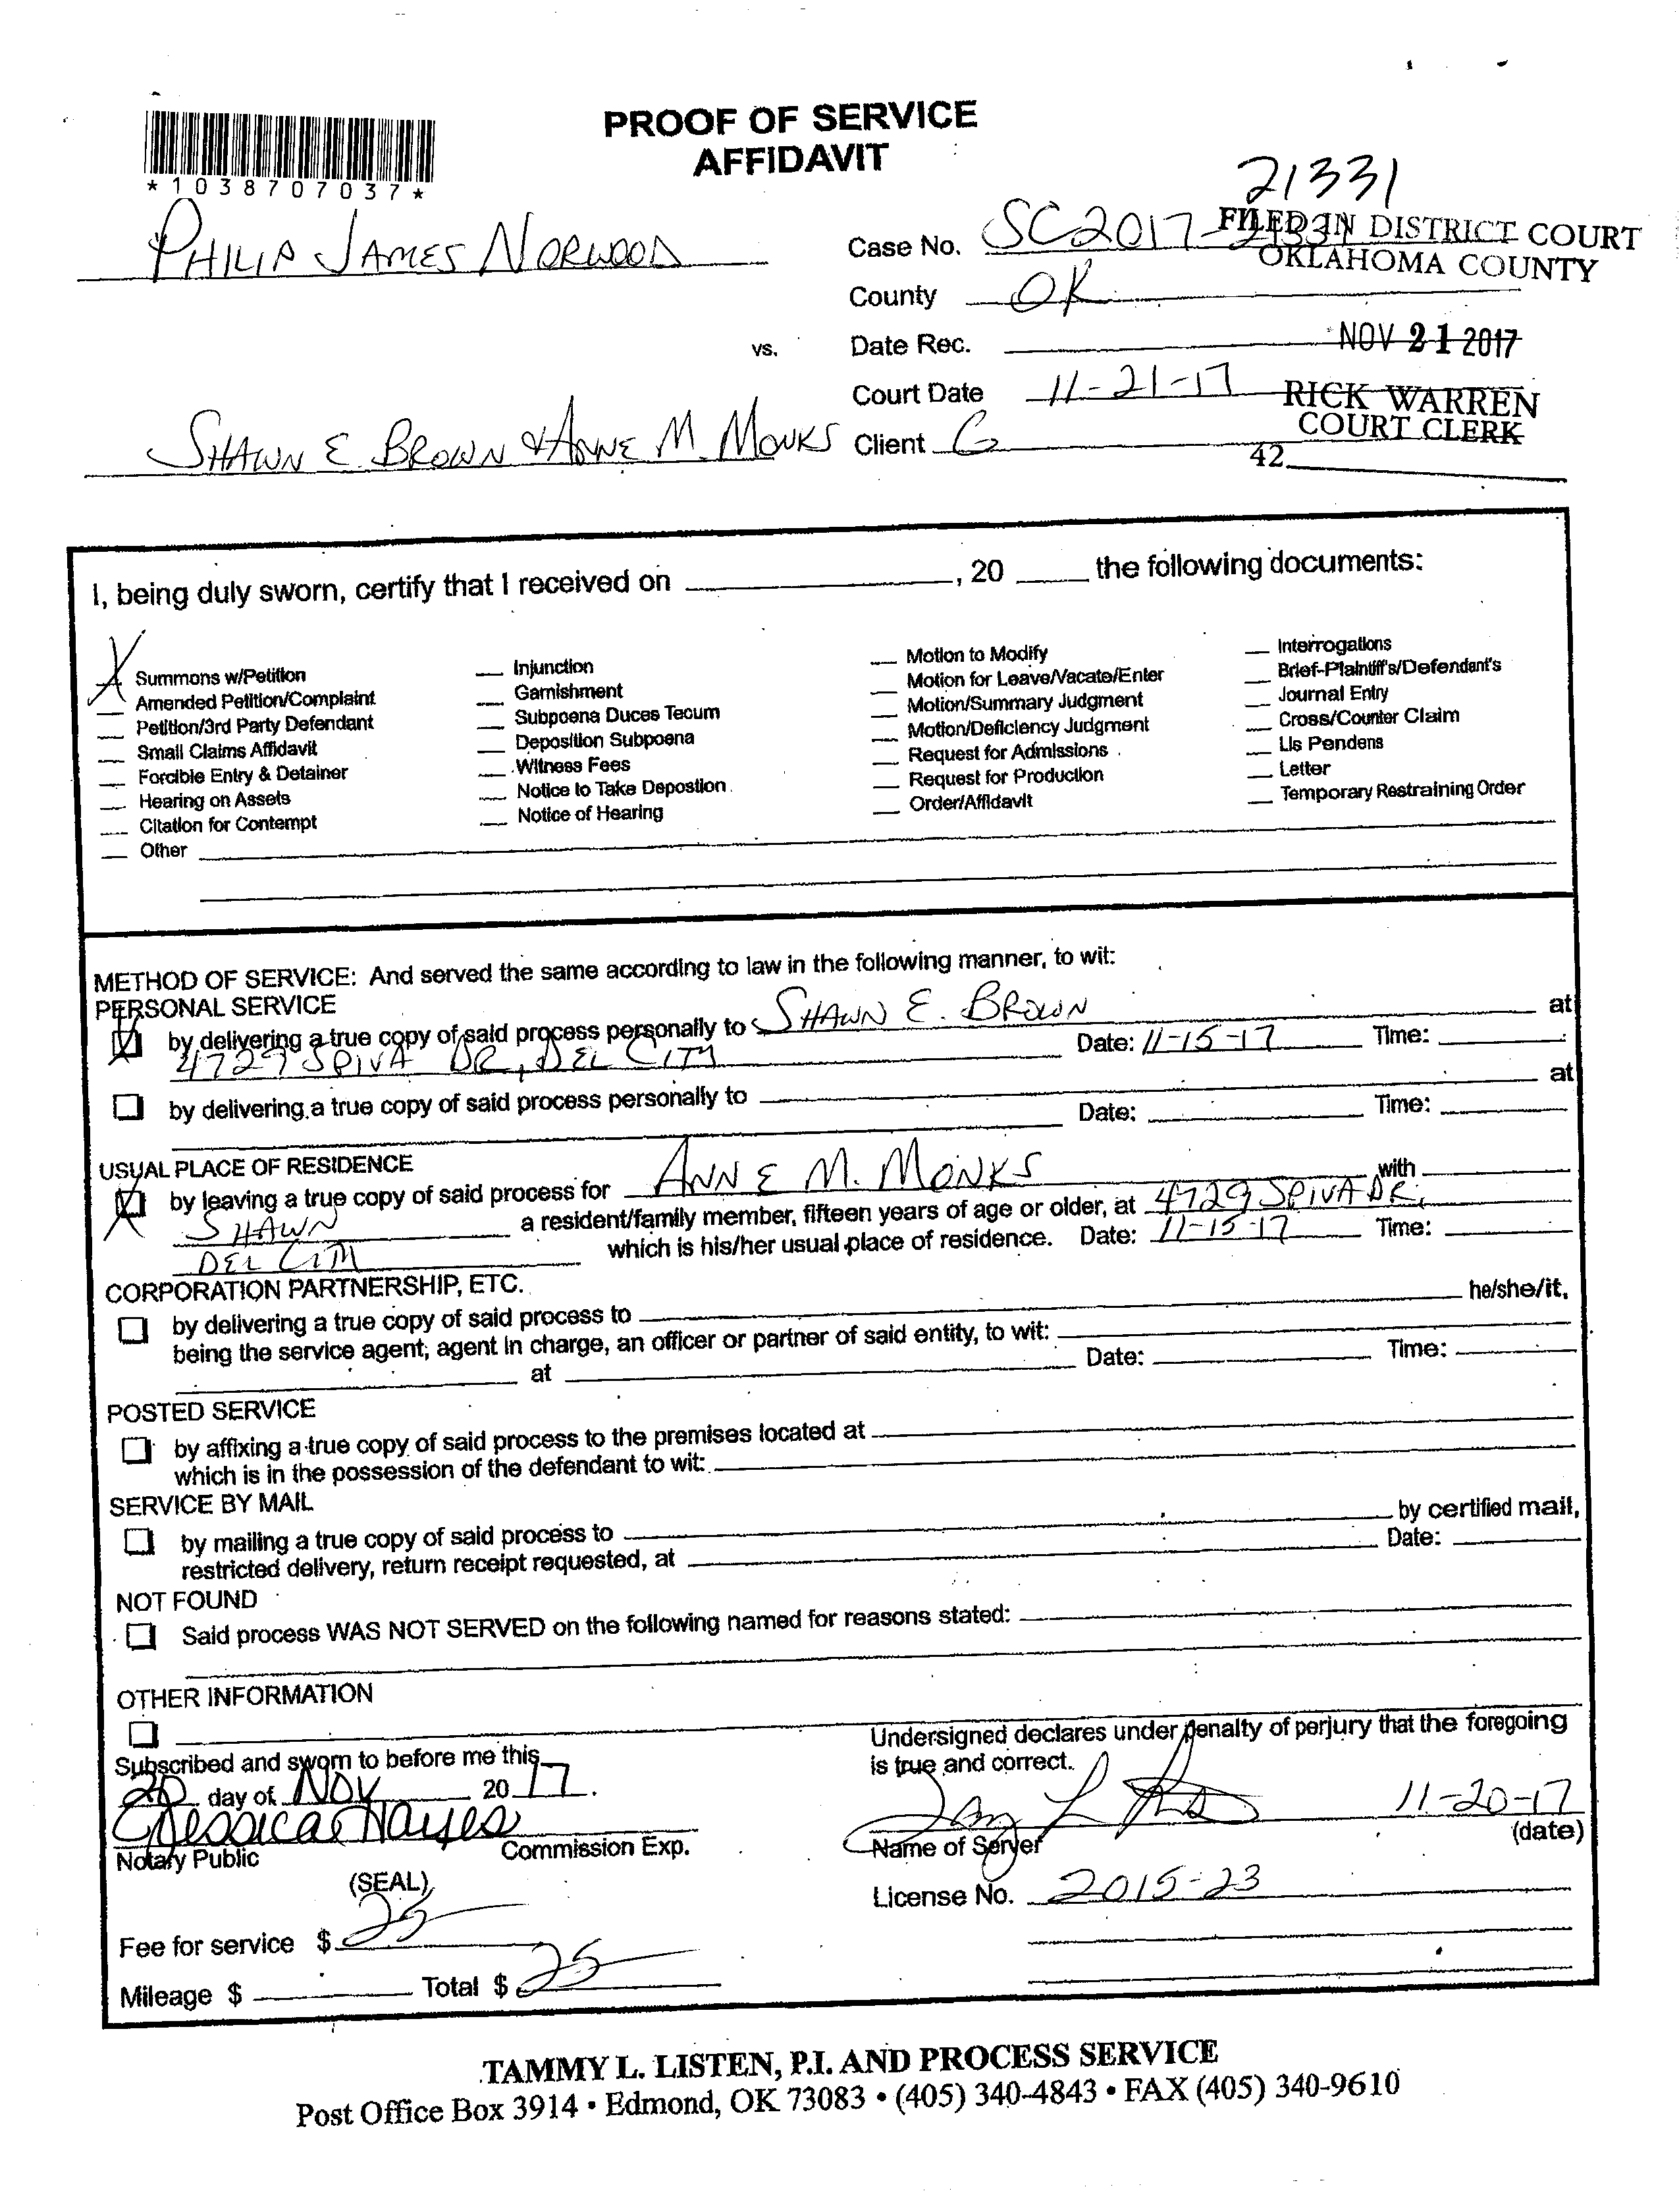 PROOF OF SERVICE
AFFIDAVIT
*1038707037*
21331
PHILIP JAMES NORWOOD
Case No. SC2017-21331
FILED IN DISTRICT COURT
OKLAHOMA COUNTY
County OK
vs.
Date Rec.
NOV 21 2017
Court Date 11-21-17
RICK WARREN
COURT CLERK
SHAWN E. BROWN & ANNE M. MONKS
Client G
42
I, being duly sworn, certify that I received on , 20 the following documents:
X Summons w/Petition
Amended Petition/Complaint
Petition/3rd Party Defendant
Small Claims Affidavit
Forcible Entry & Detainer
Hearing on Assets
Citation for Contempt
Other
Injunction
Garnishment
Subpoena Duces Tecum
Deposition Subpoena
Witness Fees
Notice to Take Depostion
Notice of Hearing
Motion to Modify
Motion for Leave/Vacate/Enter
Motion/Summary Judgment
Motion/Deficiency Judgment
Request for Admissions
Request for Production
Order/Affidavit
Interrogations
Brief-Plaintiff's/Defendant's
Journal Entry
Cross/Counter Claim
Lis Pendens
Letter
Temporary Restraining Order
METHOD OF SERVICE: And served the same according to law in the following manner, to wit:
PERSONAL SERVICE
X by delivering a true copy of said process personally to SHAWN E. BROWN at
4729 SPIVA DR, DEL CITY Date: 11-15-17 Time:
by delivering a true copy of said process personally to at
Date: Time:
USUAL PLACE OF RESIDENCE
X by leaving a true copy of said process for ANNE M. MONKS with
SHAWN a resident/family member, fifteen years of age or older, at 4729 SPIVA DR,
DEL CITY which is his/her usual place of residence. Date: 11-15-17 Time:
CORPORATION PARTNERSHIP, ETC.
by delivering a true copy of said process to he/she/it,
being the service agent, agent in charge, an officer or partner of said entity, to wit:
at Date: Time:
POSTED SERVICE
by affixing a true copy of said process to the premises located at
which is in the possession of the defendant to wit:
SERVICE BY MAIL
by mailing a true copy of said process to by certified mail,
restricted delivery, return receipt requested, at Date:
NOT FOUND
Said process WAS NOT SERVED on the following named for reasons stated:
OTHER INFORMATION
Subscribed and sworn to before me this
20 day of NOV 2017.
Jessica Hayes
Notary Public Commission Exp.
(SEAL)
Fee for service $ 25
Mileage $ Total $ 25
Undersigned declares under penalty of perjury that the foregoing
is true and correct.
11-20-17
Name of Server (date)
License No. 2015-23
TAMMY L. LISTEN, P.I. AND PROCESS SERVICE
Post Office Box 3914 • Edmond, OK 73083 • (405) 340-4843 • FAX (405) 340-9610